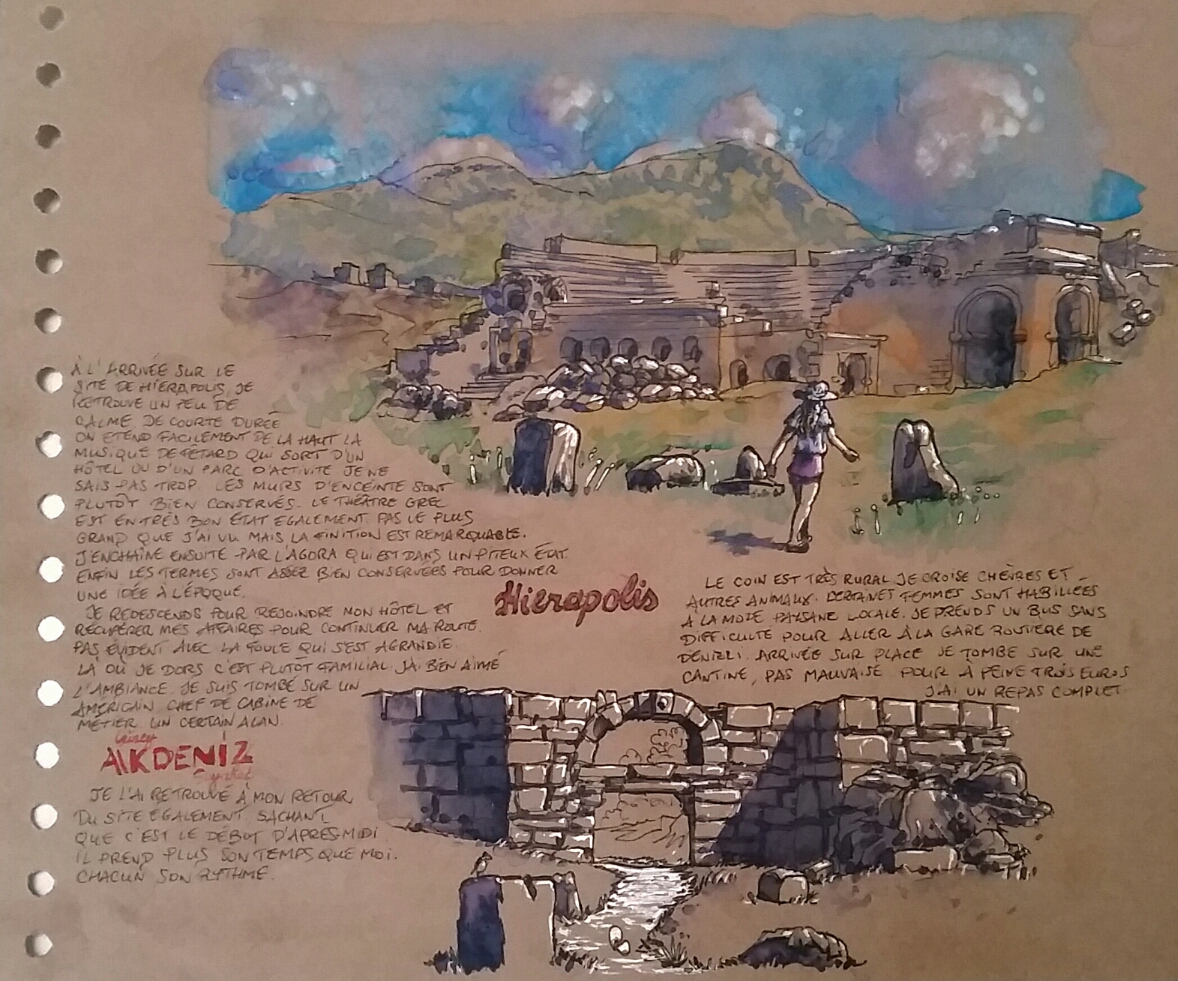 À L'ARRIVÉE SUR LE
SITE DE HIÉRAPOLIS, JE
RETROUVE UN PEU DE
CALME DE COURTE DURÉE
ON ETEND FACILEMENT DE LA HAUT LA
MUSIQUE DE FÉTARD QUI SORT D'UN
HÔTEL OU D'UN PARC D'ACTIVITÉ JE NE
SAIS PAS TROP. LES MURS D'ENCEINTE SONT
PLUTÔT BIEN CONSERVÉS. LE THÉÂTRE GREC
EST EN TRÈS BON ÉTAT EGALEMENT. PAS LE PLUS
GRAND QUE J'AI VU MAIS LA FINITION EST REMARQUABLE.
J'ENCHAÎNE ENSUITE PAR L'AGORA QUI EST DANS UN PITEUX ÉTAT.
ENFIN LES TERMES SONT ASSEZ BIEN CONSERVÉES POUR DONNER
UNE IDÉE À L'ÉPOQUE.
JE REDESCENDS POUR REJOINDRE MON HÔTEL ET
RÉCUPÉRER MES AFFAIRES POUR CONTINUER MA ROUTE.
PAS ÉVIDENT AVEC LA FOULE QUI S'EST AGRANDIE.
LÀ OÙ JE DORS C'EST PLUTÔT FAMILIAL. J'AI BEN AIMÉ
L'AMBIANCE. JE SUIS TOMBÉ SUR UN
AMERICAIN, CHEF DE CABINE DE
MÉTIER, UN CERTAIN ALAN.
AKDENIZ
JE L'AI RETROUVÉ À MON RETOUR
DU SITE ÉGALEMENT SACHANT
QUE C'EST LE DÉBUT D'APRES-MIDI
IL PREND PLUS SON TEMPS QUE MOI.
CHACUN SON RYTHME.
Hierapolis
LE COIN EST TRÈS RURAL JE CROISE CHÈVRES ET
AUTRES ANIMAUX. CERTAINES FEMMES SONT HABILLÉES
À LA MODE PAYSANE LOCALE. JE PRENDS UN BUS SANS
DIFFICULTÉ POUR ALLER À LA GARE ROUTIÈRE DE
DENIZLI. ARRIVÉE SUR PLACE JE TOMBE SUR UNE
CANTINE, PAS MAUVAISE POUR À PEINE TROIS EUROS
J'AI UN REPAS COMPLET.